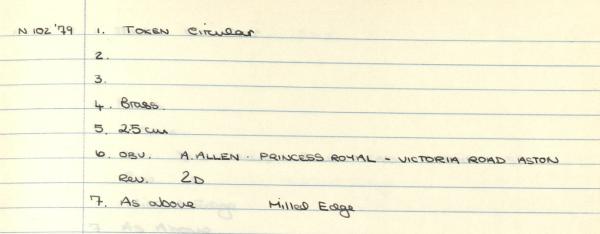 N 102 '79 1. TOKEN Circular
2.
3.
4. Brass.
5. 2.5 cm
6. OBV. A. ALLEN · PRINCESS ROYAL - VICTORIA ROAD ASTON
Rev. 2D
7. As above Milled Edge